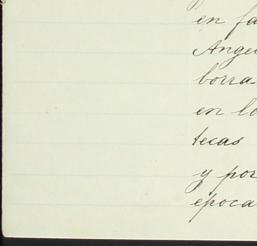 en fa
Ange
borra-
en lo
tecas
y por
época